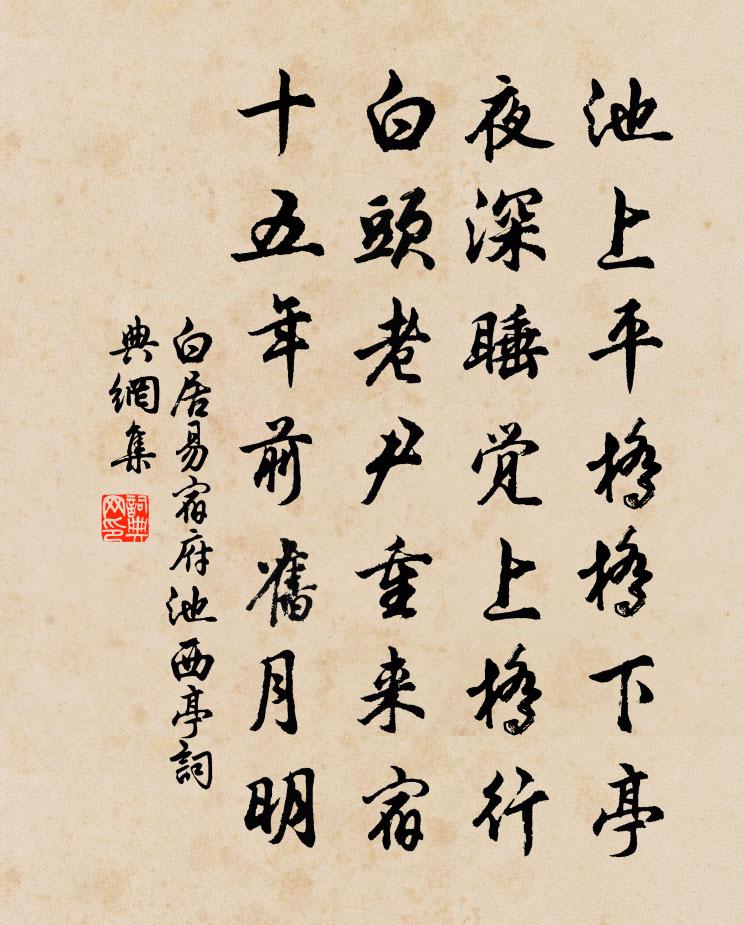 池上平橋橋下亭
夜深睡觉上橋行
白頭老尹重来宿
十五年前舊月明
白居易宿府池西亭詞
典網集
詞典
网印